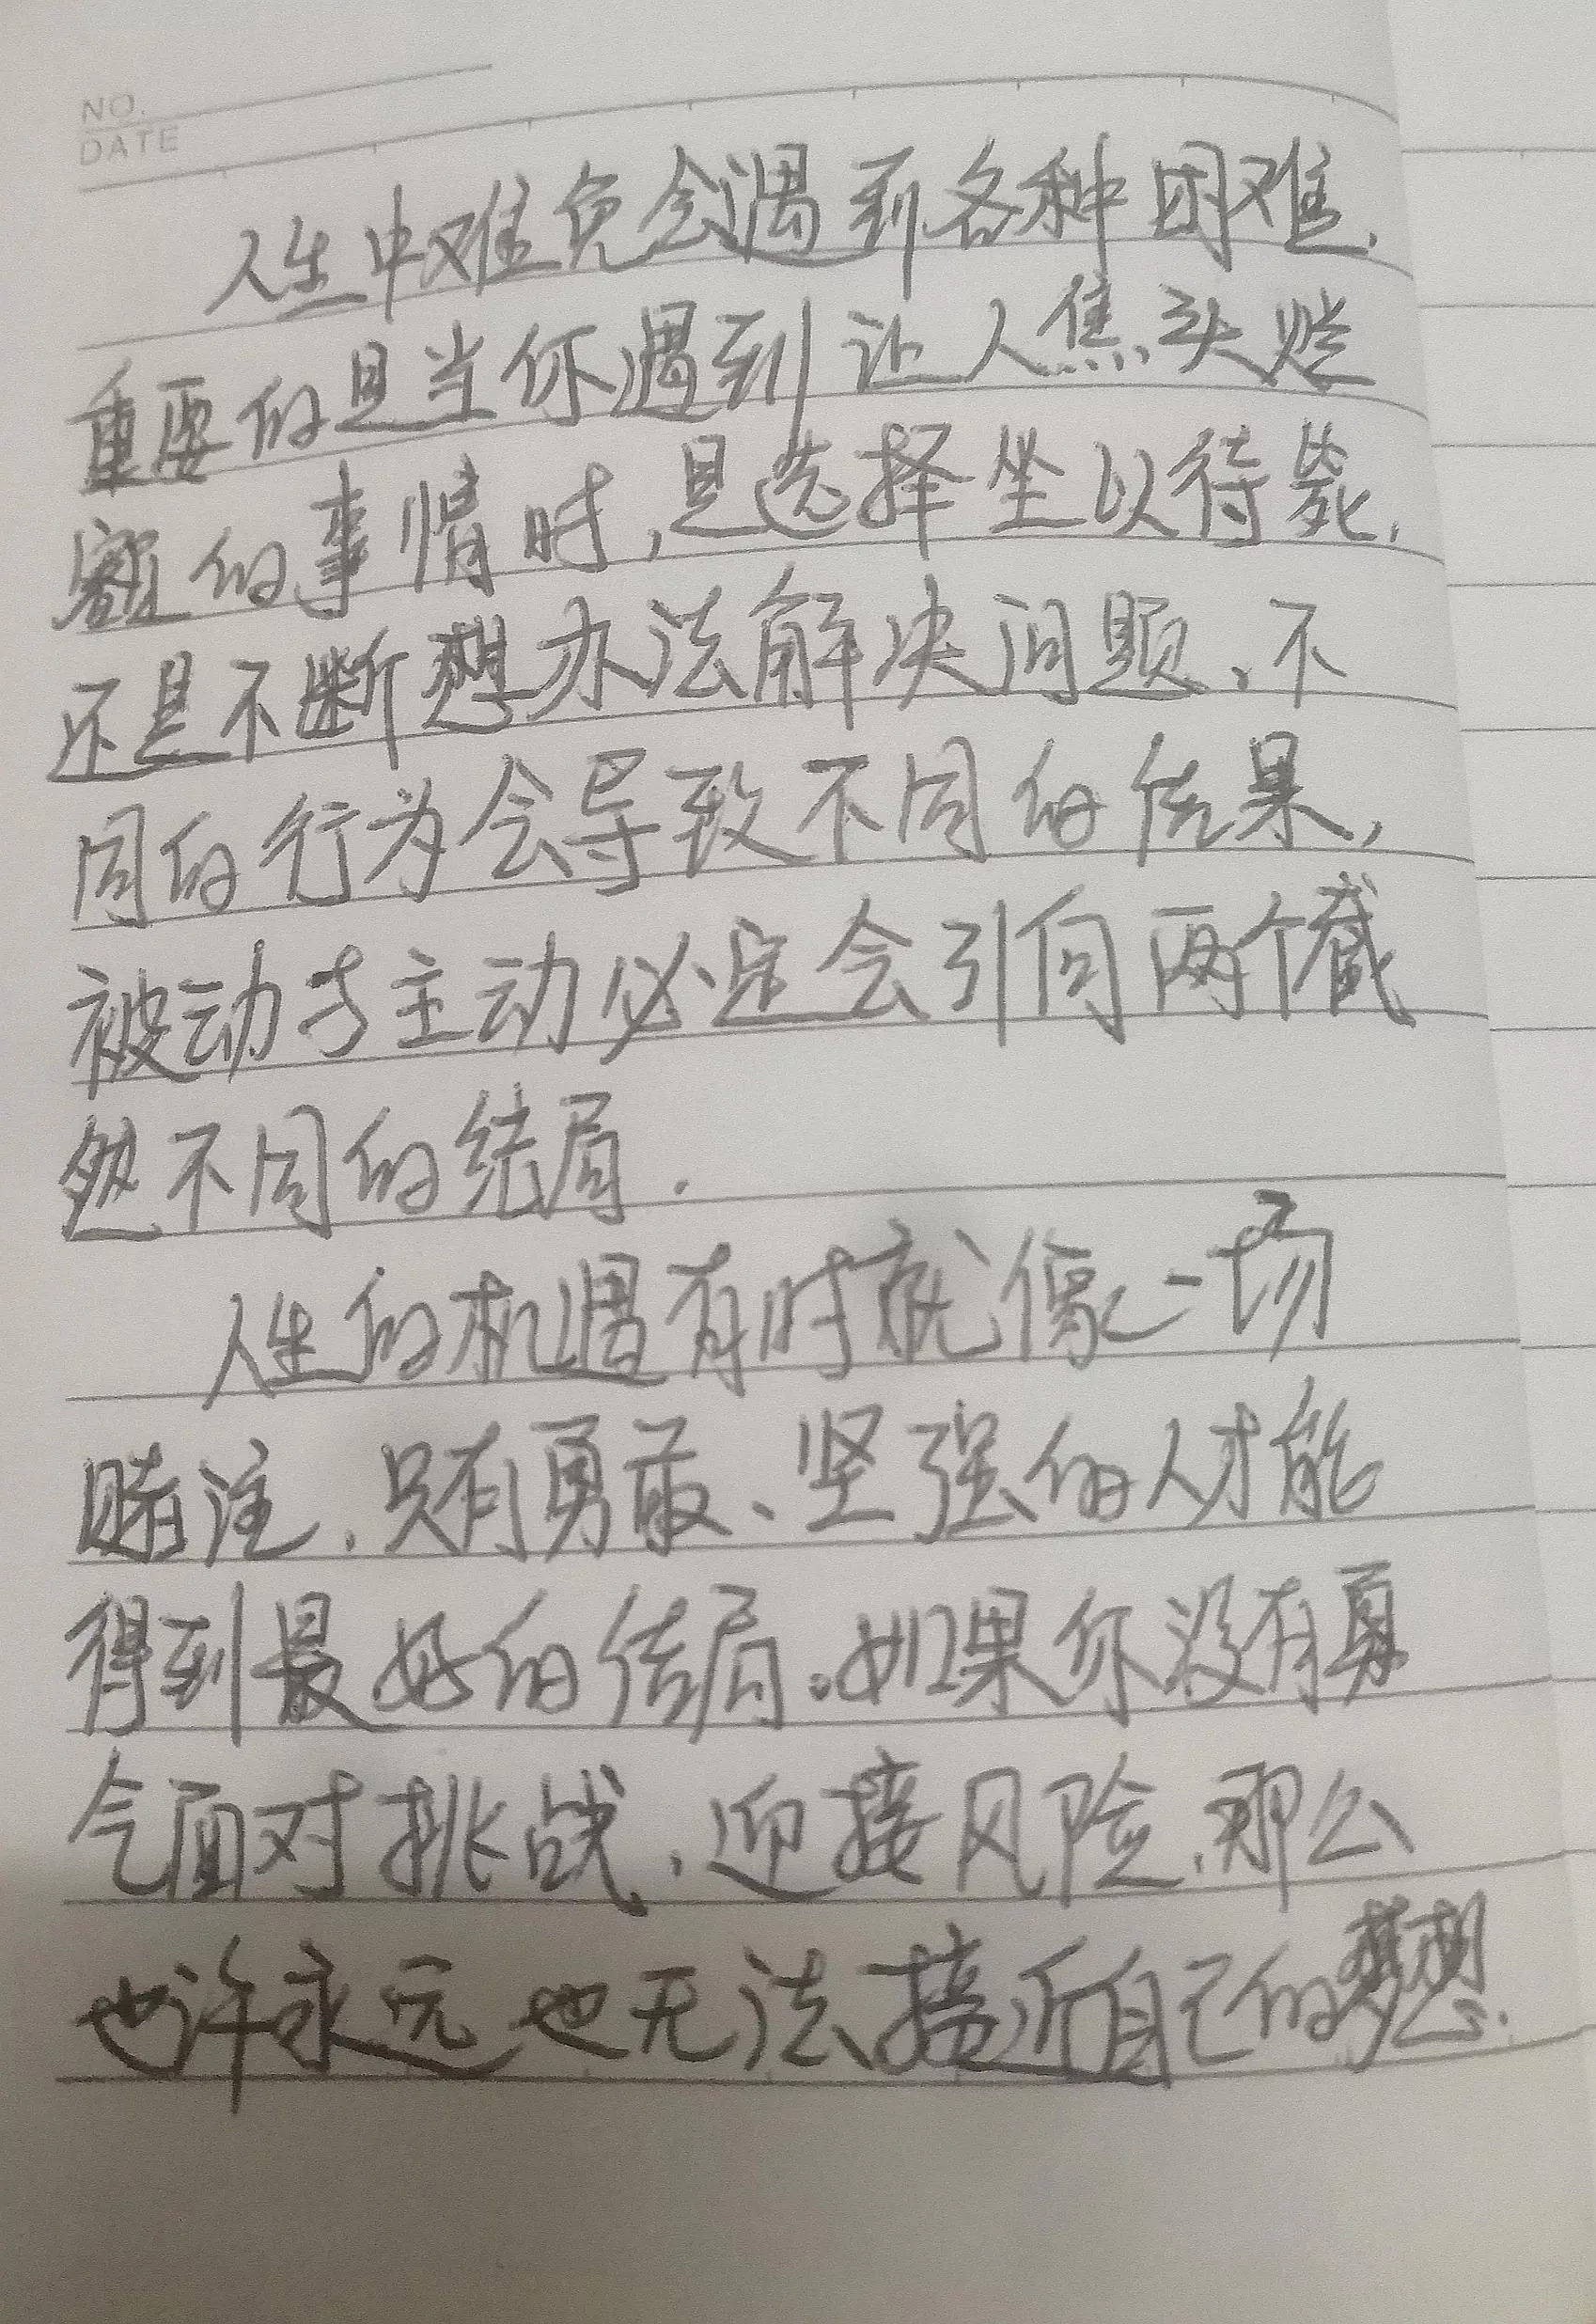 NO.
DATE
人生中难免会遇到各种困难.
重要的是当你遇到让人焦头烂
额的事情时,是选择坐以待毙,
还是不断想办法解决问题、不
同的行为会导致不同的结果,
被动与主动必定会引向两个截
然不同的结局.
人生的机遇有时就像一场
赌注.只有勇敢、坚强的人才能
得到最好的结局。如果你没有勇
气面对挑战.迎接风险.那么
也许永远也无法接近自己的梦想.